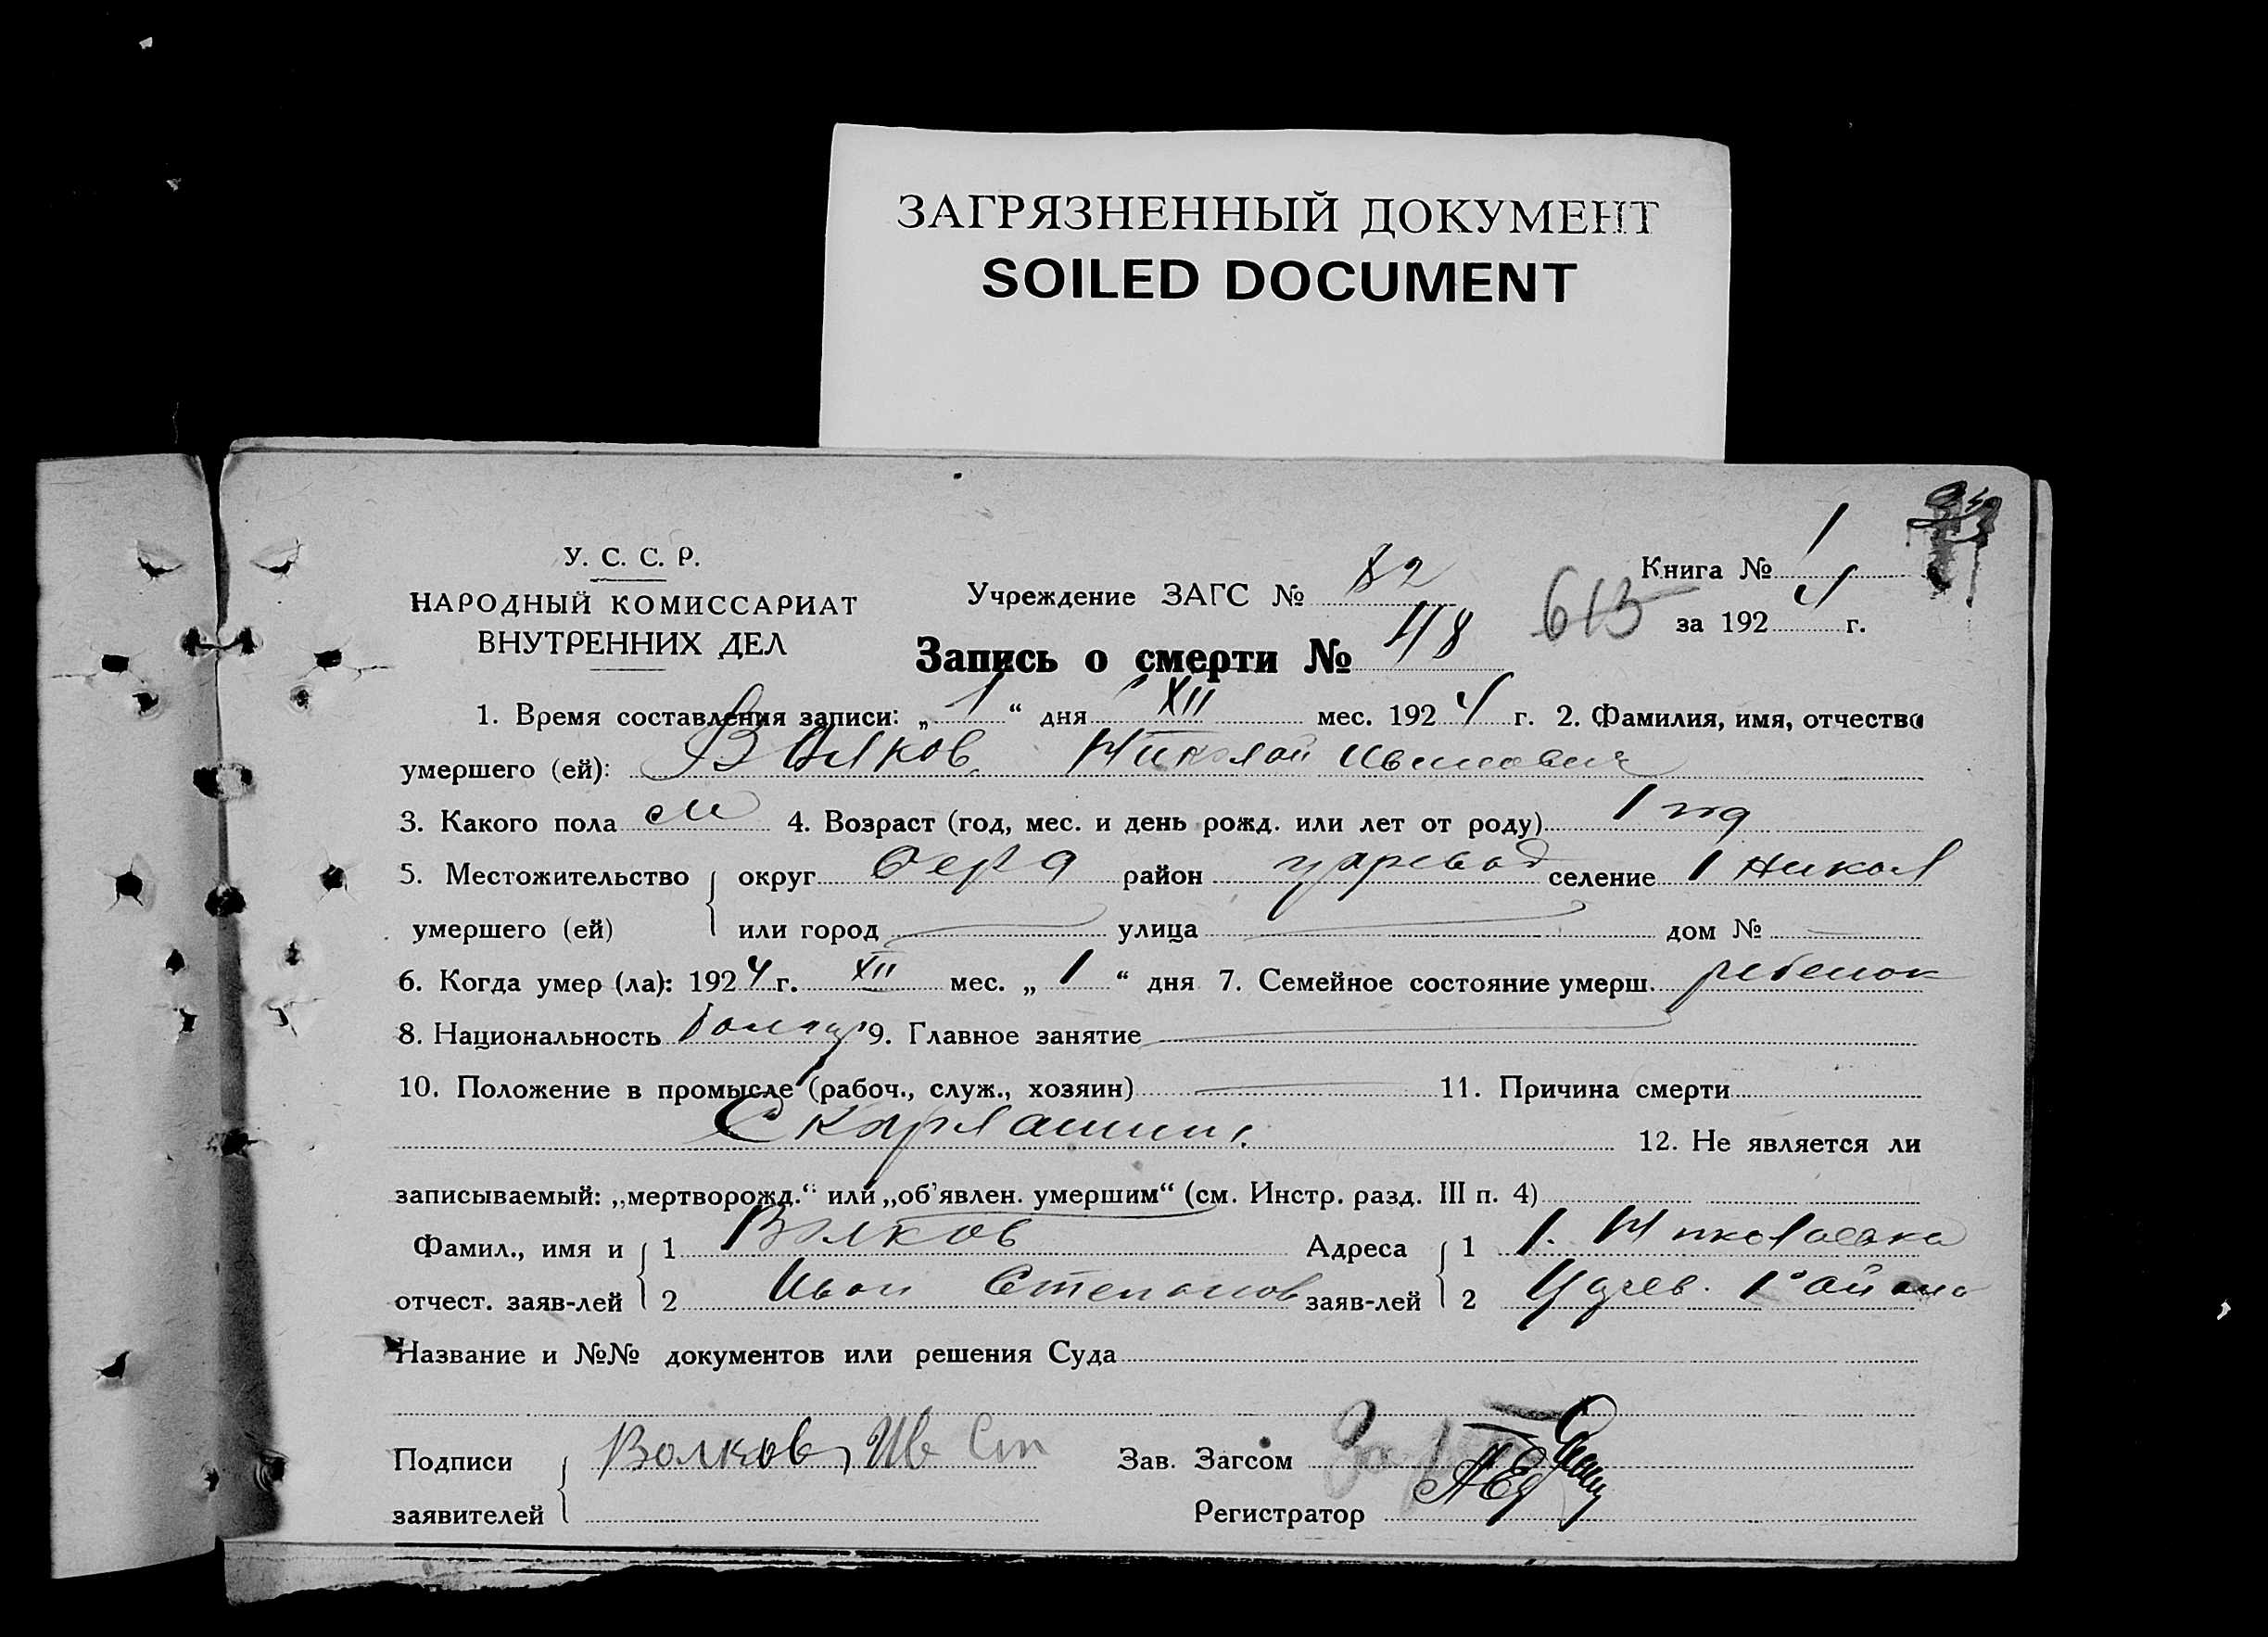 ЗАГРЯЗНЕННЫЙ ДОКУМЕНТ
SOILED DOCUMENT
У. С. С. Р.
НАРОДНЫЙ КОМИССАРИАТ
ВНУТРЕННИХ ДЕЛ
Учреждение ЗАГС № 82
Книга № 1
613
за 1924 г.
Запись о смерти № 48
1. Время составления записи: „1“ дня XII мес. 1924 г. 2. Фамилия, имя, отчество
умершего (ей): Волков Николай Иванович
3. Какого пола м 4. Возраст (год, мес. и день рожд. или лет от роду) 1 год
5. Местожительство округ район селение I Никол
умершего (ей) или город улица дом №
6. Когда умер (ла): 1924 г. XII мес. „1“ дня 7. Семейное состояние умерш. ребенок
8. Национальность болгар 9. Главное занятие
10. Положение в промысле (рабоч., служ., хозяин) 11. Причина смерти
Скарлатина
12. Не является ли
записываемый: „мертворожд.“ или „об'явлен. умершим“ (см. Инстр. разд. III п. 4)
Фамил., имя и 1 Волков Адреса 1 I. Николаевка
отчест. заяв-лей 2 Иван Степанов заяв-лей 2 района
Название и №№ документов или решения Суда
Подписи Волков Ив Ст Зав. Загсом
заявителей Регистратор